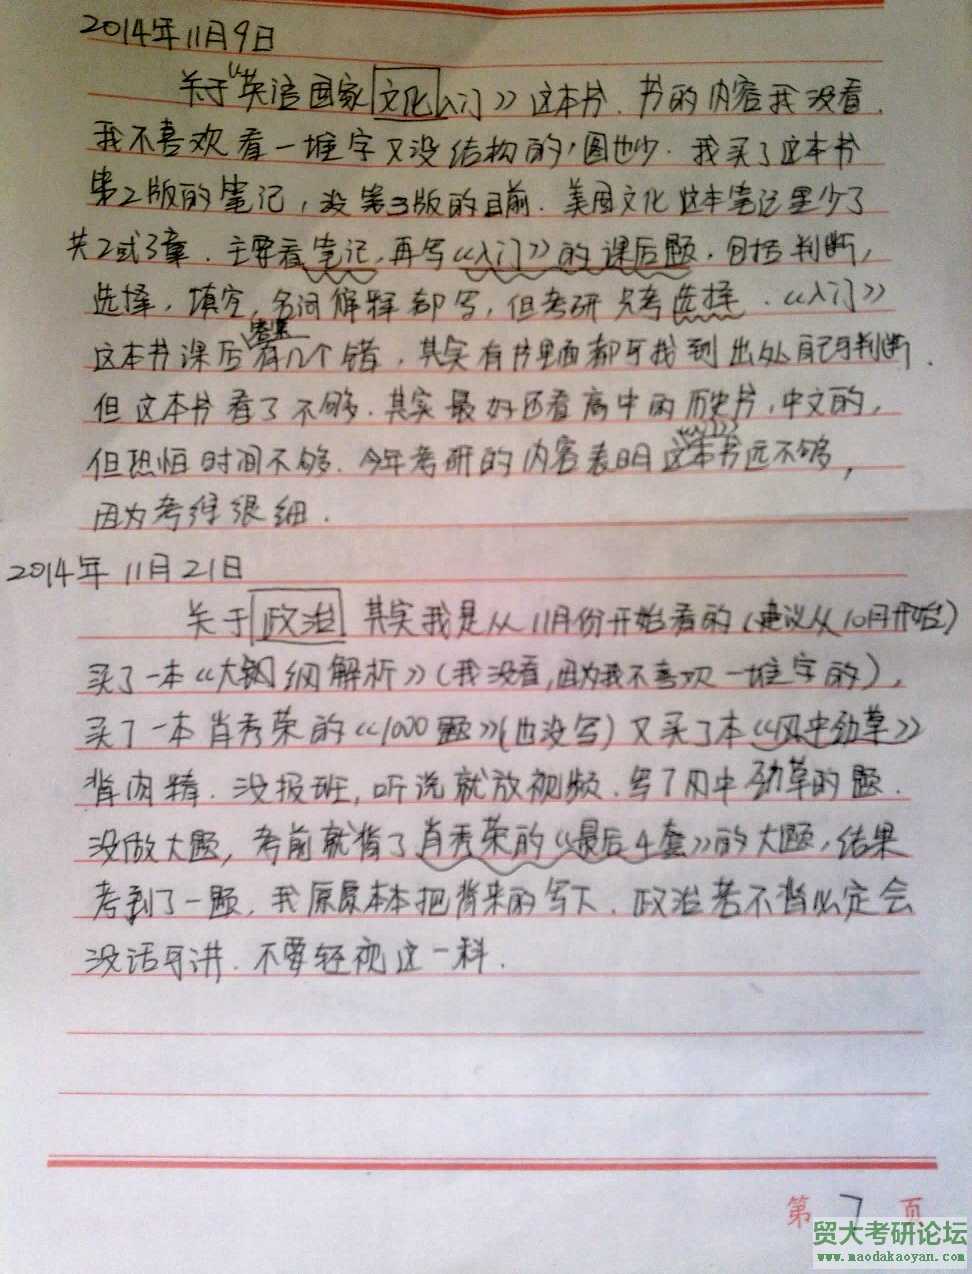 2014年11月9日
关于《英语国家文化入门》这本书.书的内容我没看.
我不喜欢看一堆字又没结构的,图也少.我买了这本书
第2版的笔记,没第3版的目前.美国文化这本笔记里少了
共2或3章.主要看笔记,再写《入门》的课后题.包括判断,
选择,填空,名词解释都写,但考研只考选择.《入门》
这本书课后答案有几个错,其实有书里面都可找到出处自己可判断.
但这本书看了不够.其实最好还看高中的历史书,中文的,
但恐怕时间不够.今年考研的内容表明这本书远不够,
因为考得很细.
2014年11月21日
关于政治 其实我是从11月份开始看的(建议从10月开始)
买了一本《大纲解析》(我没看,因为我不喜欢一堆字的),
买了一本肖秀荣的《1000题》(也没写)又买了本《风中劲草》
背肉精.没报班,听说就放视频.写了风中劲草的题.
没做大题,考前就背了肖秀荣的《最后4套》的大题,结果
考到了一题,我原原本本把背来的写下.政治若不背必定会
没话可讲.不要轻视这一科.
第 7 页
贸大考研论坛
www.maodakaoyan.com